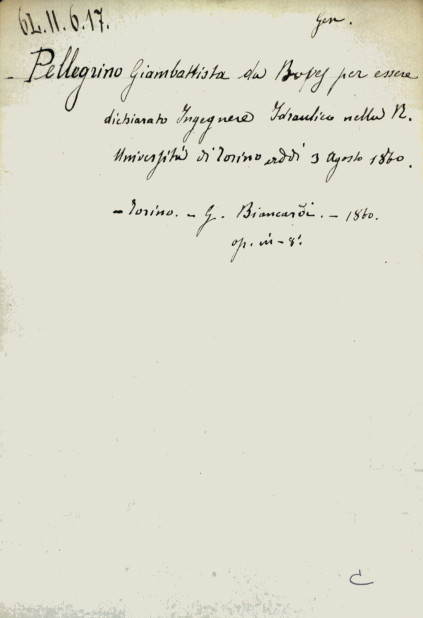 62.11.6.17.
Gen.
- Pellegrino Giambattista da per essere
dichiarato Ingegnere Idraulico nella R.
Università di Torino addì 3 Agosto 1860.
- Torino. - G. Biancardi. - 1860.
op. in - 8°.
C